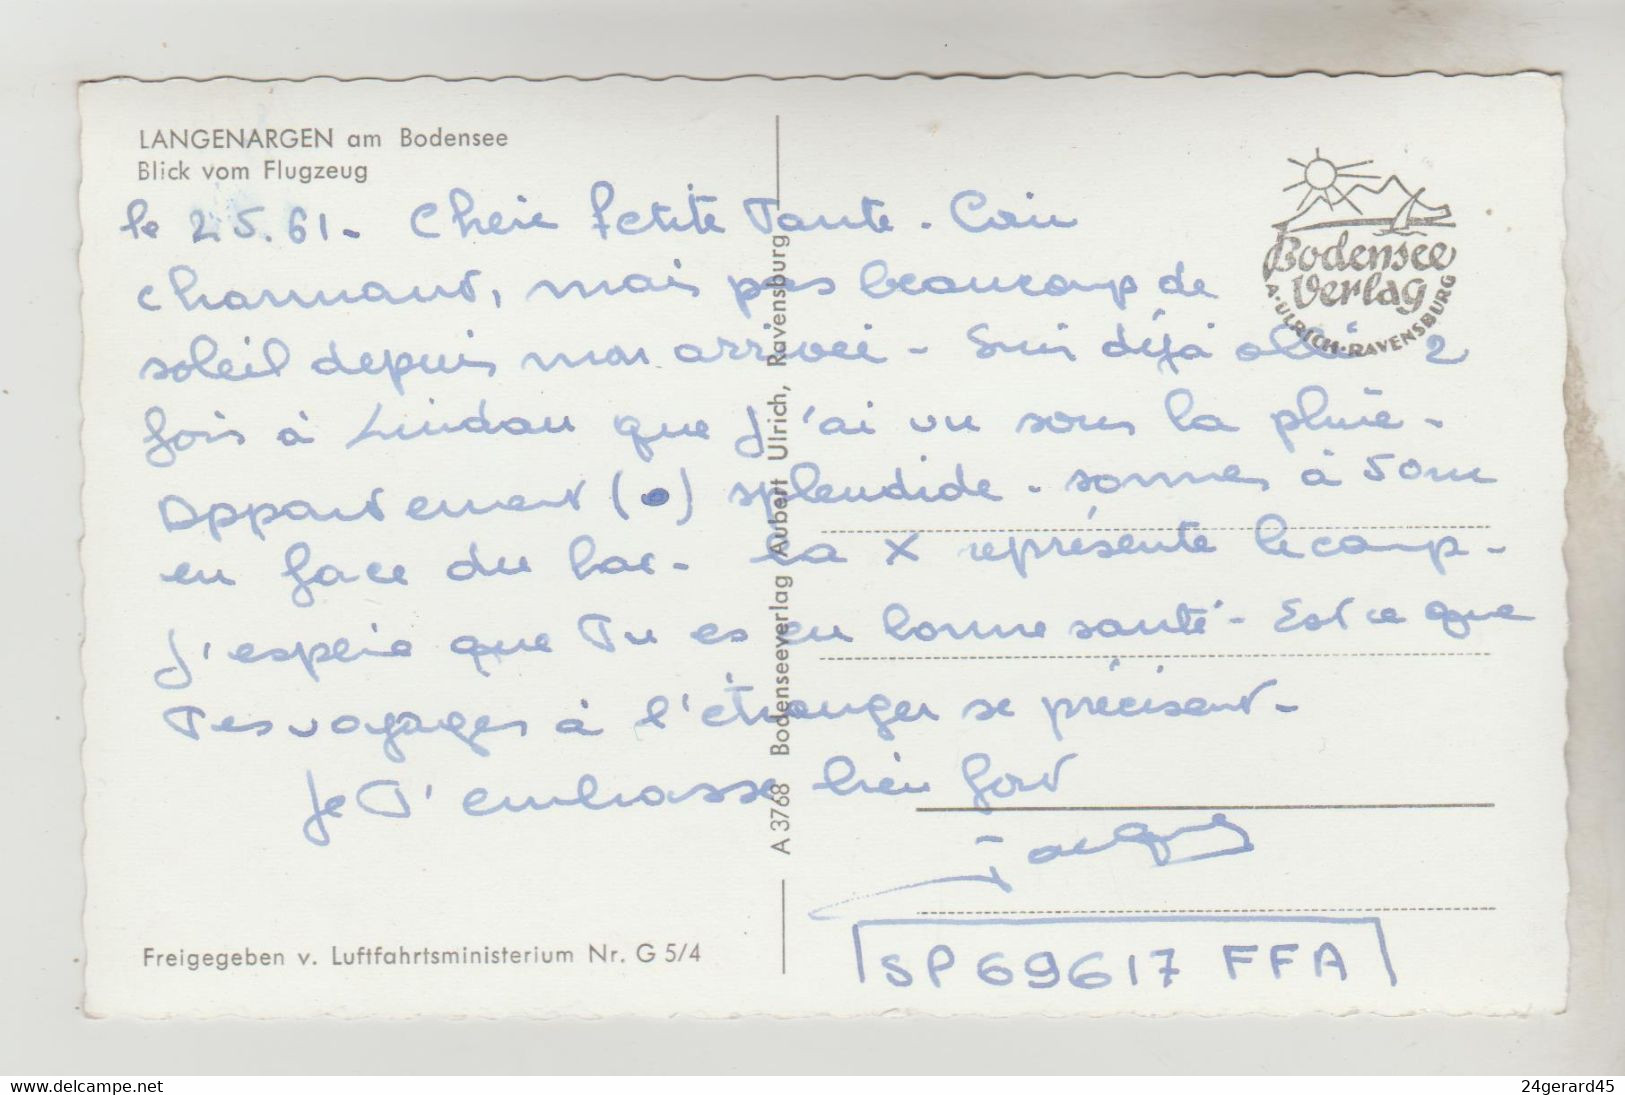 LANGENARGEN am Bodensee
Blick vom Flugzeug
le 2.5.61 - Chérie Petite Tante - Coin
charmant, mais pas beaucoup de
soleil depuis mon arrivée - Suis déjà allé 2
fois à Lindau que j'ai vu sous la pluie -
Appartement (●) splendide - sommes à 50m
en face du lac - La X représente le camp -
J'espère que Tu es en bonne santé - Est ce que
Tes voyages à l'étranger se précisent -
Je T'embrasse bien fort
Jacques
SP 69617 FFA
Bodensee
Verlag
A·ULRICH·RAVENSBURG
A 3768 Bodenseeverlag Aubert Ulrich, Ravensburg
Freigegeben v. Luftfahrtsministerium Nr. G 5/4
www.delcampe.net
24gerard45